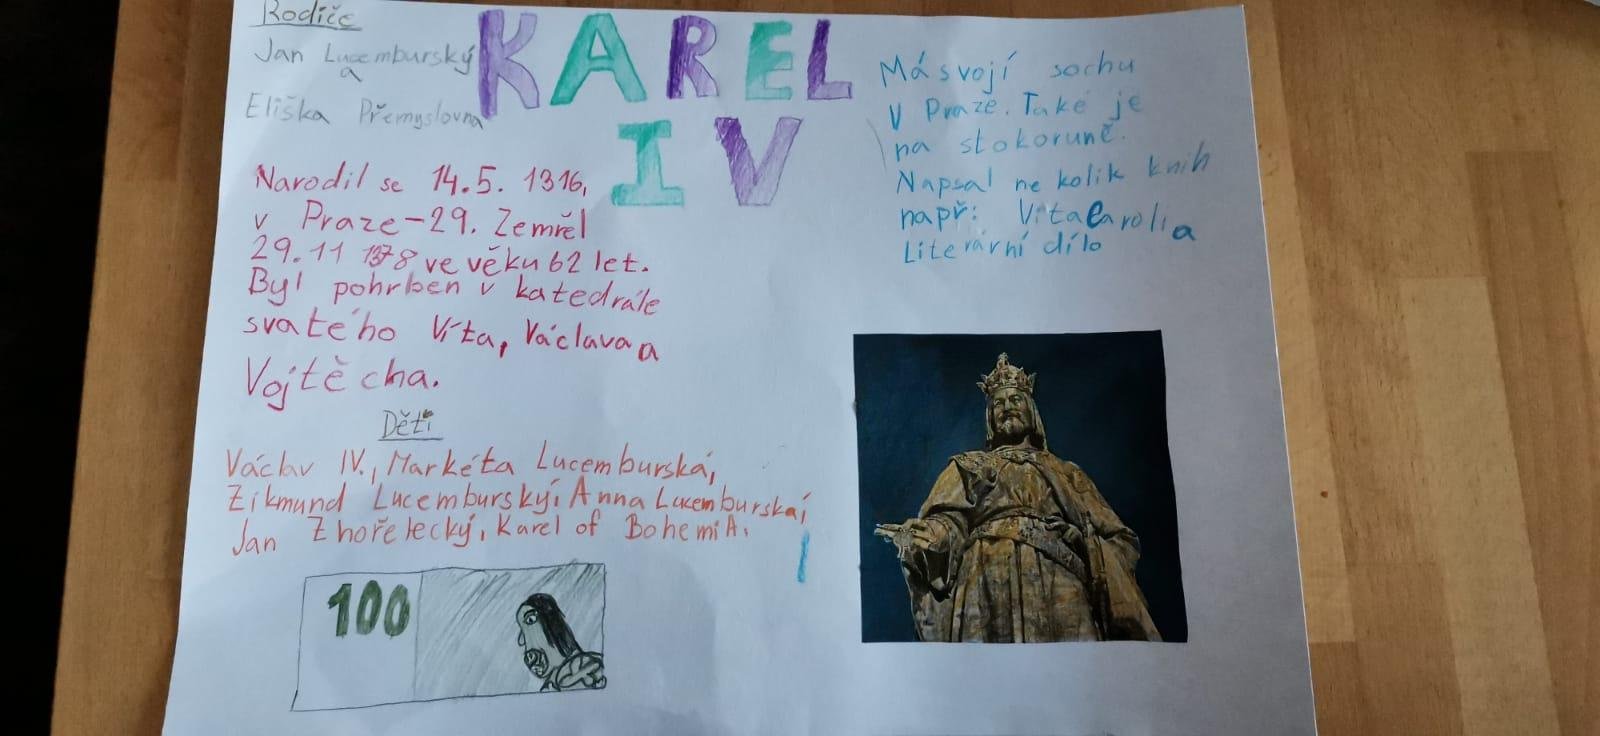 Rodiče
Jan Lucemburský
a
Eliška Přemyslovna
KAREL
IV
Má svojí sochu
v Praze. Také je
na stokoruně.
Napsal ne kolik knih
např: Vita Carolia
Literární dílo
Narodil se 14.5. 1316,
v Praze-29. Zemřel
29.11 1378 ve věku 62 let.
Byl pohrben v katedrále
svatého Víta, Václava a
Vojtěcha.
Děti
Václav IV., Markéta Lucemburská,
Zikmund Lucemburský, Anna Lucemburská,
Jan Zhořelecký, Karel of BohemiA.
100